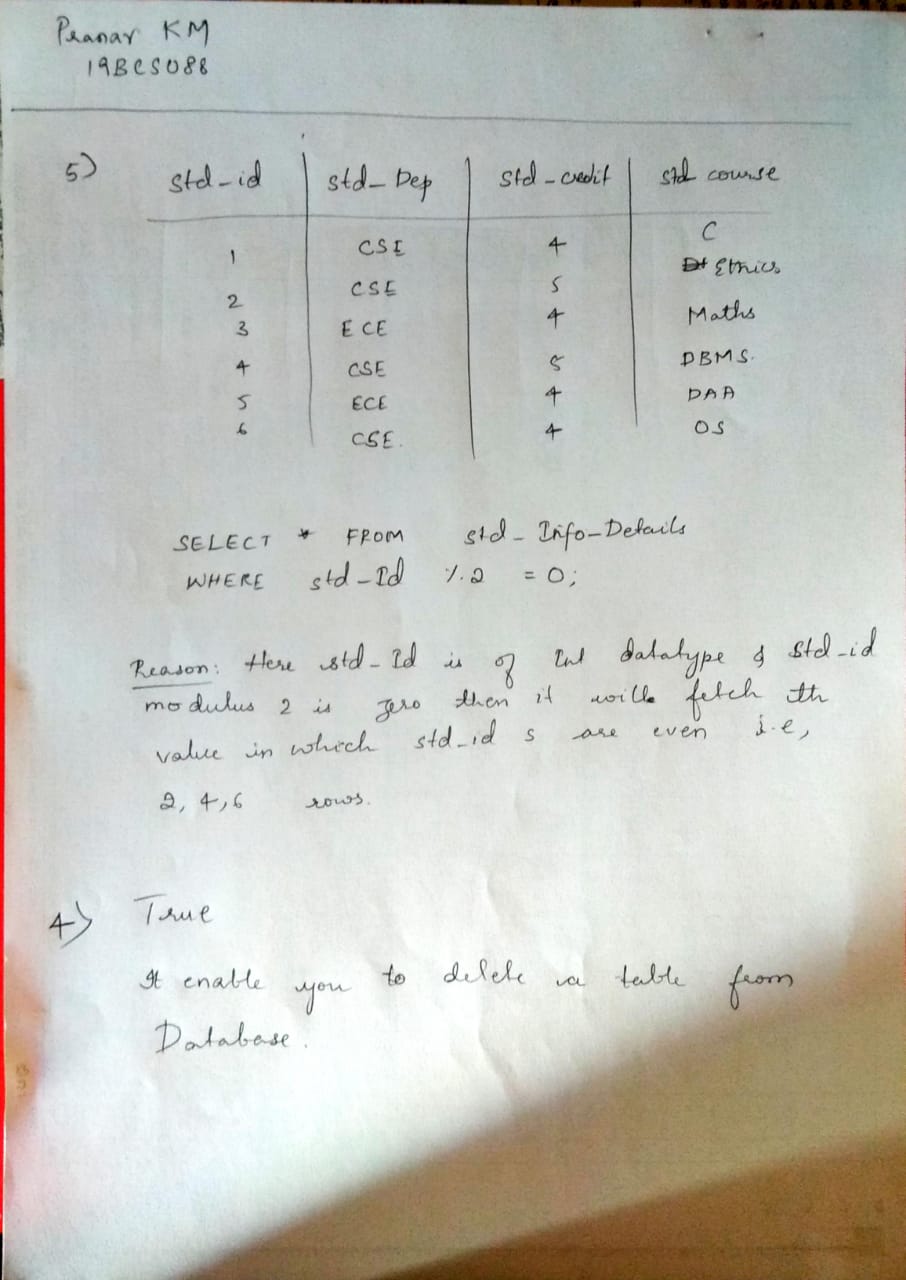 Pranav KM
19BCS088
5) std-id std-Dep std-credit std course
1 CSE 4 C
2 CSE 5 Ethics
3 ECE 4 Maths
4 CSE 5 DBMS.
5 ECE 4 DAA
6 CSE. 4 OS
SELECT * FROM std-Info-Details
WHERE std-Id %2 = 0;
Reason: Here std-Id is of Int datatype & std-id
modulus 2 is zero then it will fetch th
value in which std-id s are even i.e,
2, 4, 6 rows.
4) True
It enable you to delete a table from
Database.